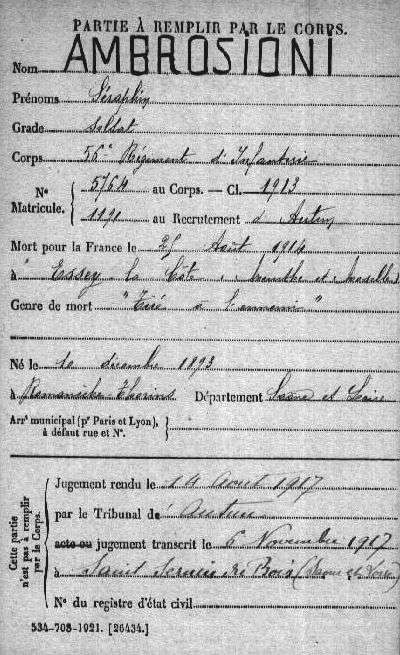 PARTIE À REMPLIR PAR LE CORPS.
Nom AMBROSIONI
Prénoms Séraphin
Grade soldat
Corps 56e Régiment d'Infanterie
No Matricule. { 5764 au Corps. — Cl. 1913
1191 au Recrutement d Autun
Mort pour la France le 25 Août 1914
à Essey la Côte, Meurthe et Moselle
Genre de mort "Tué à l'ennemi"
Né le 10 décembre 1893
à Romanèche Thorins Département Saône et Loire
Arrt municipal (pr Paris et Lyon), à défaut rue et No. }
Cette partie n'est pas à remplir par le Corps.
Jugement rendu le 14 Août 1917
par le Tribunal de Autun
acte ou jugement transcrit le 6 Novembre 1917
à Saint Sernin du Bois (Saône et Loire)
No du registre d'état civil
534-708-1921. [26434.]